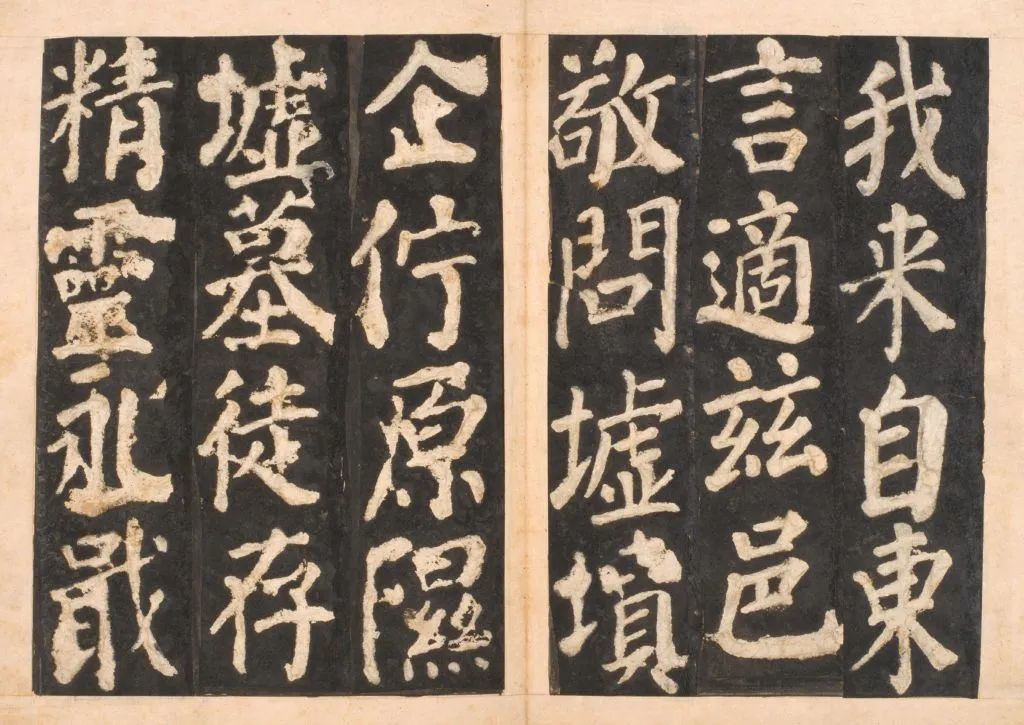 我来自東
言適兹邑
敬問墟墳
企佇原隰
墟墓徒存
精靈永戢